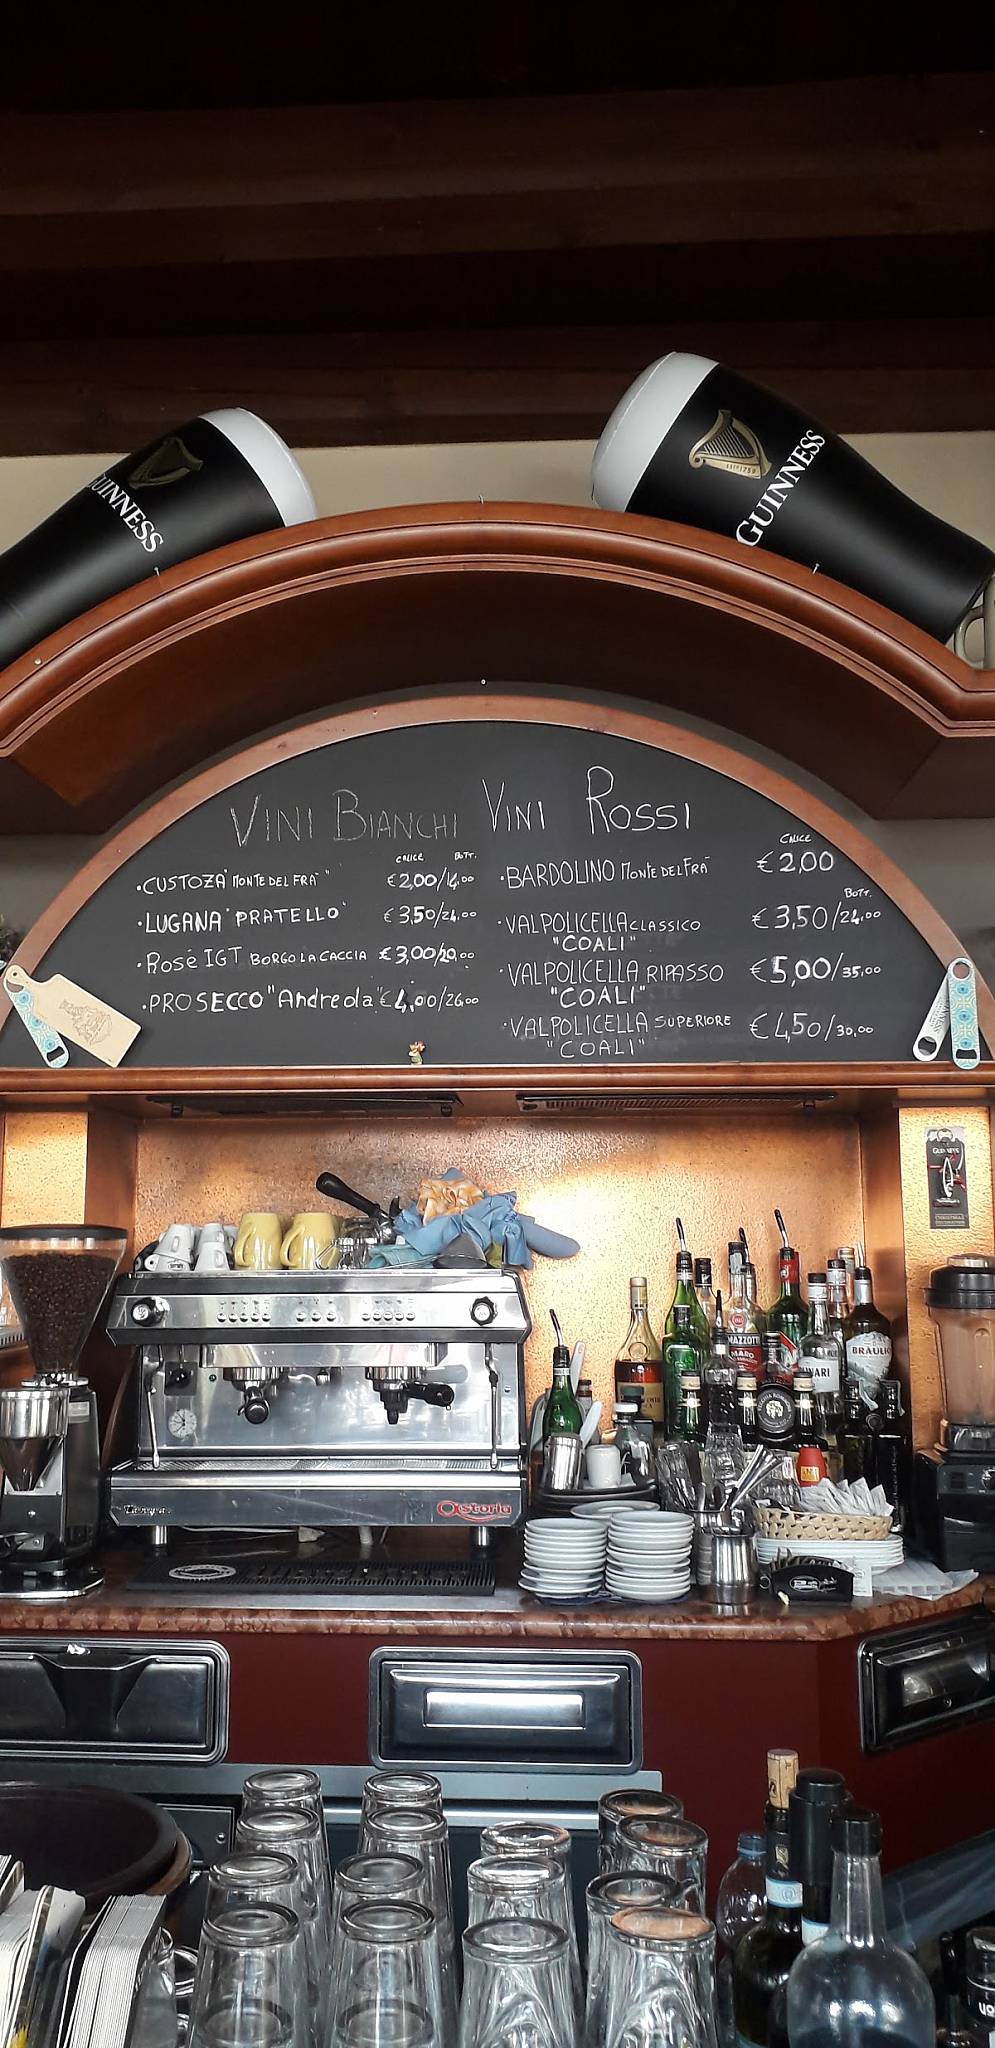 GUINNESS
ESTD 1759
GUINNESS
VINI BIANCHI
CALICE BOTT.
·CUSTOZA "MONTE DEL FRÀ" €2,00/14,00
·LUGANA "PRATELLO" €3,50/24,00
·Rosé IGT BORGO LA CACCIA €3,00/20,00
·PROSECCO "Andreola" €4,00/26,00
VINI ROSSI
CALICE
·BARDOLINO MONTE DEL FRÀ €2,00
BOTT.
·VALPOLICELLA CLASSICO €3,50/24,00
"COALI"
·VALPOLICELLA RIPASSO €5,00/35,00
"COALI"
·VALPOLICELLA SUPERIORE €4,50/30,00
"COALI"
GUINNESS
RAMAZZOTTI
AMARO
BRAULIO
Astoria